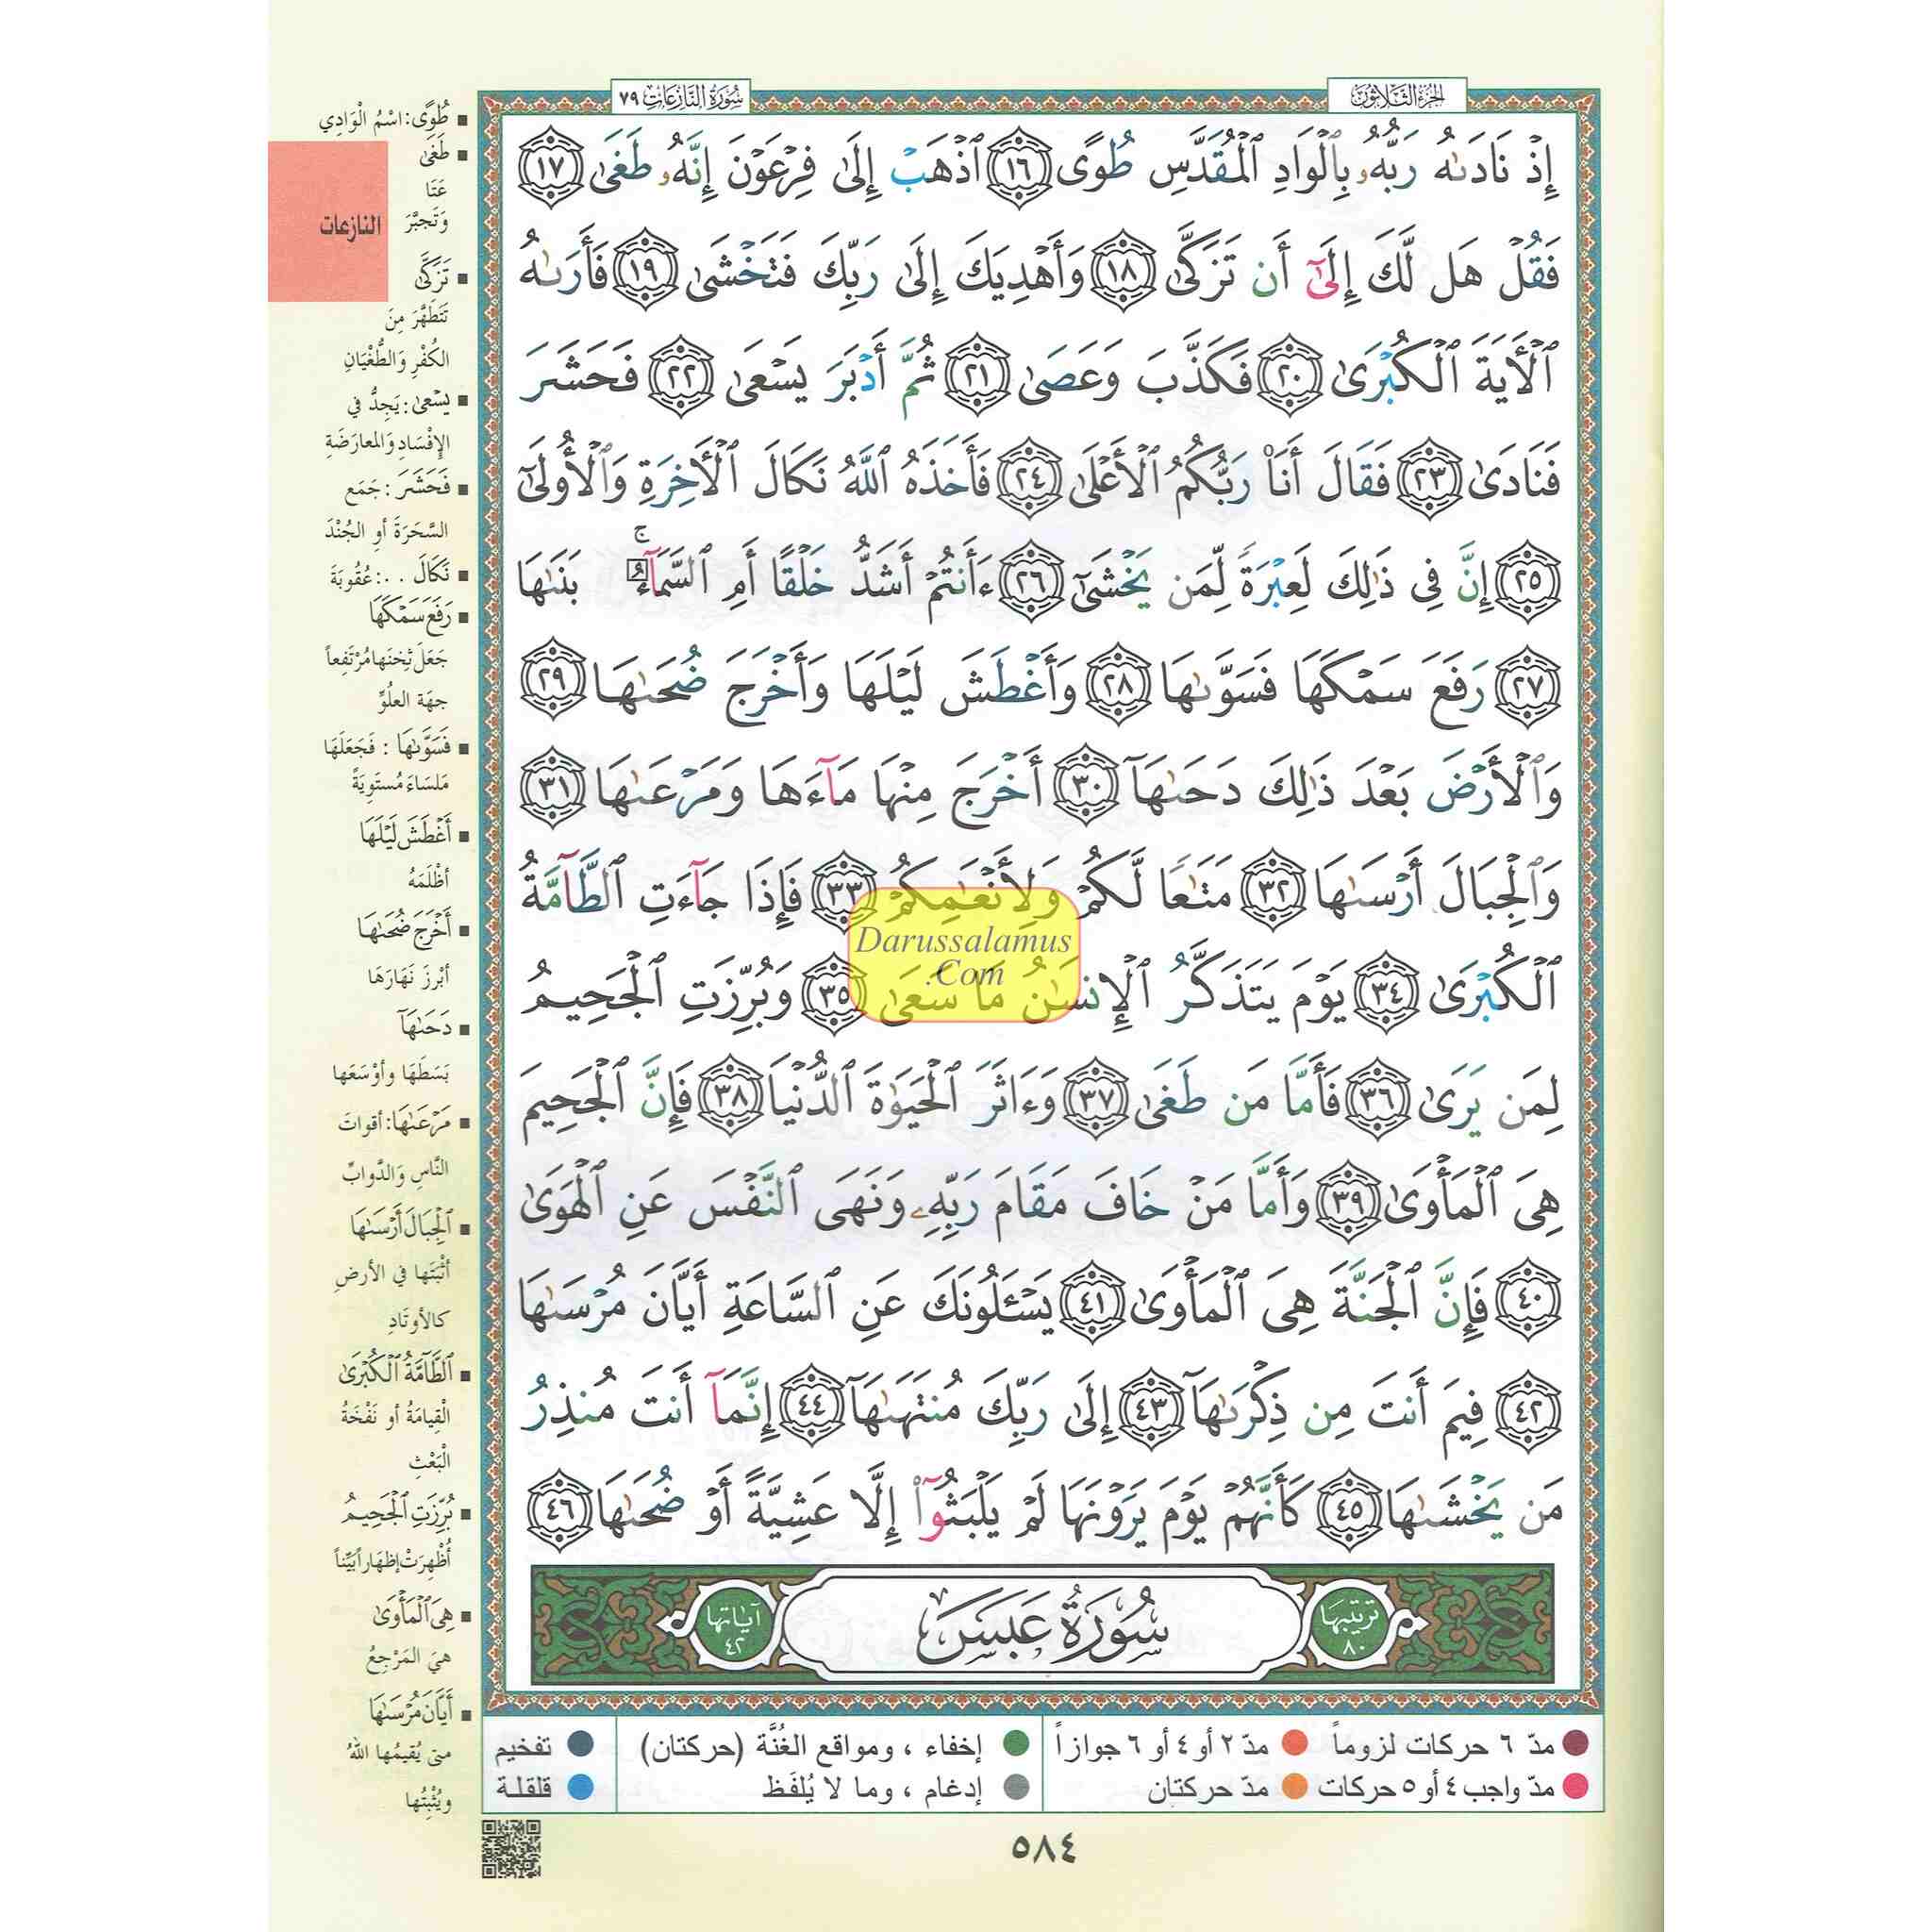 الجزء الثلاثون
سورة النازعات ٧٩
إِذْ نَادَىٰهُ رَبُّهُۥ بِٱلْوَادِ ٱلْمُقَدَّسِ طُوًى ١٦ ٱذْهَبْ إِلَىٰ فِرْعَوْنَ إِنَّهُۥ طَغَىٰ ١٧
فَقُلْ هَل لَّكَ إِلَىٰٓ أَن تَزَكَّىٰ ١٨ وَأَهْدِيَكَ إِلَىٰ رَبِّكَ فَتَخْشَىٰ ١٩ فَأَرَىٰهُ
ٱلْأَيَةَ ٱلْكُبْرَىٰ ٢٠ فَكَذَّبَ وَعَصَىٰ ٢١ ثُمَّ أَدْبَرَ يَسْعَىٰ ٢٢ فَحَشَرَ
فَنَادَىٰ ٢٣ فَقَالَ أَنَا۠ رَبُّكُمُ ٱلْأَعْلَىٰ ٢٤ فَأَخَذَهُ ٱللَّهُ نَكَالَ ٱلْأَخِرَةِ وَٱلْأُولَىٰٓ
٢٥ إِنَّ فِى ذَٰلِكَ لَعِبْرَةً لِّمَن يَخْشَىٰٓ ٢٦ ءَأَنتُمْ أَشَدُّ خَلْقًا أَمِ ٱلسَّمَآءُ ۚ بَنَىٰهَا
٢٧ رَفَعَ سَمْكَهَا فَسَوَّىٰهَا ٢٨ وَأَغْطَشَ لَيْلَهَا وَأَخْرَجَ ضُحَىٰهَا ٢٩
وَٱلْأَرْضَ بَعْدَ ذَٰلِكَ دَحَىٰهَآ ٣٠ أَخْرَجَ مِنْهَا مَآءَهَا وَمَرْعَىٰهَا ٣١
وَٱلْجِبَالَ أَرْسَىٰهَا ٣٢ مَتَٰعًا لَّكُمْ وَلِأَنْعَٰمِكُمْ ٣٣ فَإِذَا جَآءَتِ ٱلطَّآمَّةُ
ٱلْكُبْرَىٰ ٣٤ يَوْمَ يَتَذَكَّرُ ٱلْإِنسَٰنُ مَا سَعَىٰ ٣٥ وَبُرِّزَتِ ٱلْجَحِيمُ
لِمَن يَرَىٰ ٣٦ فَأَمَّا مَن طَغَىٰ ٣٧ وَءَاثَرَ ٱلْحَيَوٰةَ ٱلدُّنْيَا ٣٨ فَإِنَّ ٱلْجَحِيمَ
هِىَ ٱلْمَأْوَىٰ ٣٩ وَأَمَّا مَنْ خَافَ مَقَامَ رَبِّهِۦ وَنَهَى ٱلنَّفْسَ عَنِ ٱلْهَوَىٰ
٤٠ فَإِنَّ ٱلْجَنَّةَ هِىَ ٱلْمَأْوَىٰ ٤١ يَسْـَٔلُونَكَ عَنِ ٱلسَّاعَةِ أَيَّانَ مُرْسَىٰهَا
٤٢ فِيمَ أَنتَ مِن ذِكْرَىٰهَآ ٤٣ إِلَىٰ رَبِّكَ مُنتَهَىٰهَآ ٤٤ إِنَّمَآ أَنتَ مُنذِرُ
مَن يَخْشَىٰهَا ٤٥ كَأَنَّهُمْ يَوْمَ يَرَوْنَهَا لَمْ يَلْبَثُوٓا۟ إِلَّا عَشِيَّةً أَوْ ضُحَىٰهَا ٤٦
Darussalamus
.Com
ترتيبها ٨٠
سُورَةُ عَبَسَ
آياتها ٤٢
طُوًى: اسْمُ الْوَادِي
طَغَىٰ
عَتَا
وَتَجبَّرَ
النازعات
تَزَكَّىٰ
تَتَطَهَّرَ مِنَ
الكُفْرِ وَالطُّغْيَانِ
يَسْعَىٰ: يَجِدُّ في
الإفْسَادِ وَالمعارَضَةِ
فَحَشَرَ: جَمَع
السَّحَرَةَ أو الجُنْدَ
نَكَالَ ..: عُقُوبَةَ
رَفَعَ سَمْكَهَا
جَعَلَ ثِخنَها مُرْتَفِعاً
جهَة العلُوِّ
فَسَوَّىٰهَا: فَجَعَلَهَا
مَلسَاءَ مُستَوِيَةً
أَغْطَشَ لَيْلَهَا
أظْلَمَهُ
أَخْرَجَ ضُحَىٰهَا
أبْرزَ نَهَارَهَا
دَحَىٰهَآ
بَسَطَهَا وأوْسَعَها
مَرْعَىٰهَا: أقواتَ
النَّاسِ وَالدَّوابِّ
ٱلْجِبَالَ أَرْسَىٰهَا
أثْبَتَها في الأرضِ
كالأوتَادِ
ٱلطَّآمَّةُ ٱلْكُبْرَىٰ
الْقِيامَةُ أو نَفْخَةُ
الْبَعْثِ
بُرِّزَتِ ٱلْجَحِيمُ
أُظْهِرَتْ إظهَاراً بَيِّناً
هِىَ ٱلْمَأْوَىٰ
هيَ المَرْجِعُ
أَيَّانَ مُرْسَىٰهَا
متى يُقيمُها اللهُ
ويُثْبِتُها
مدّ ٦ حركات لزوماً
مدّ ٢ أو ٤ أو ٦ جوازاً
إخفاء ، ومواقع الغُنَّة (حركتان)
تفخيم
مدّ واجب ٤ أو ٥ حركات
مدّ حركتان
إدغام ، وما لا يُلفَظ
قلقلة
٥٨٤